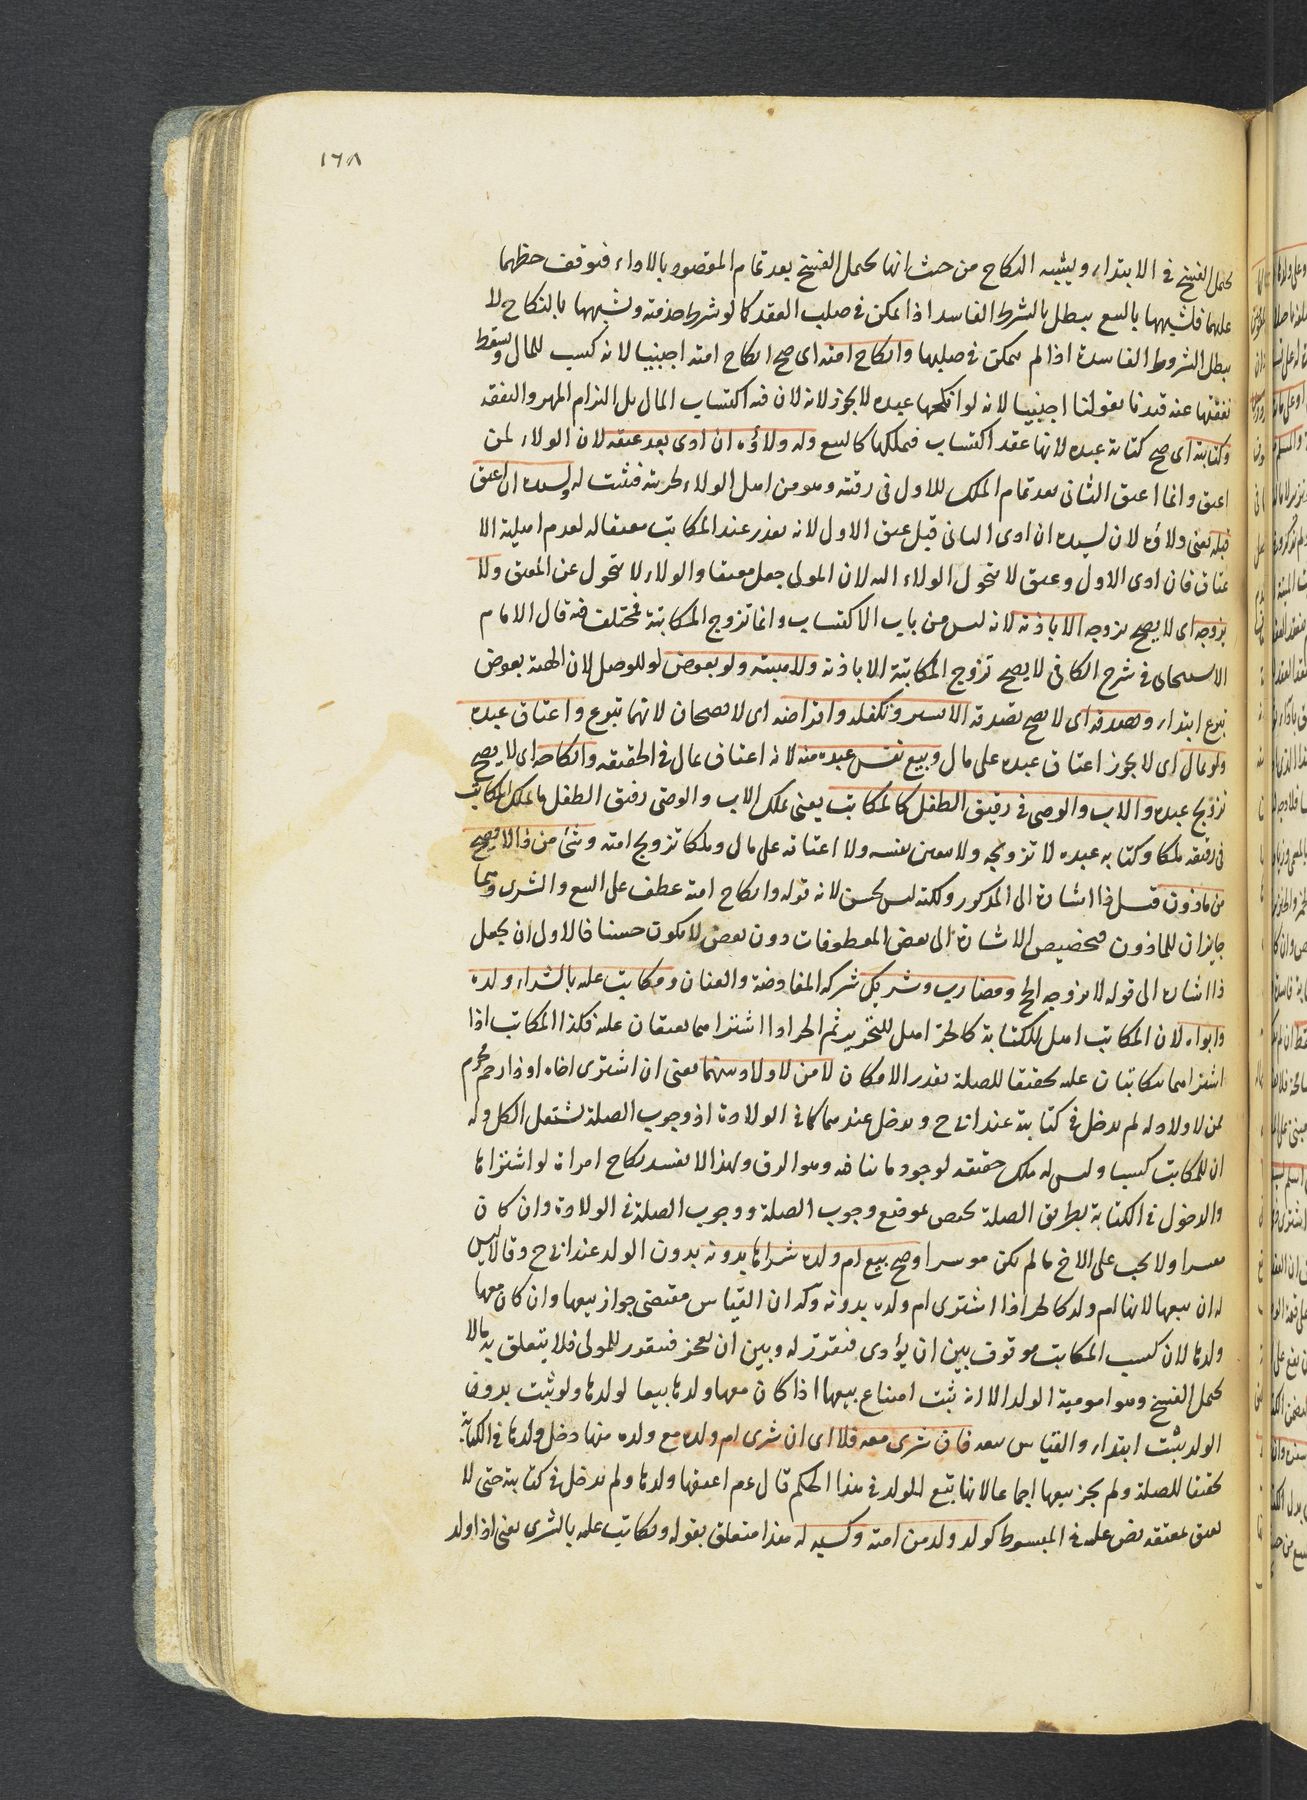 ١٦٨
يحتمل الفسخ في الابتداء ويشبه النكاح من حيث انها تحتمل الفسخ بعد تمام المقصود بالاداء فتوقف حظهما
عليهما فلشبهها بالبيع يبطل بالشرط الفاسد اذا تمكن في صلب العقد كما لو شرط خدمته وشبهها بالنكاح لا
يبطل الشروط الفاسدة اذا لم يتمكن في صلبها وانكاح امته اى صح انكاح امته اجنبيا لانه كسب للمال ويسقط
نفقتها عنه قيدنا بقولنا اجنبيا لانه لو انكحها عبده لا يجوز لانه لان فيه اكتساب المال بل التزام المهر والنفقة
وكتابته اى صح كتابة عبده لانها عقد اكتساب فيملكها كالبيع وله ولاؤه ان ادى بعد عتقه لان الولاء لمن
اعتق وانما اعتق الثاني بعد تمام الملك للاول في رقبته وهو من اهل الولاء لحريته فيثبت له ولسيده ان اعتق
قبله يعني ولاؤه لان لسيده ان ادى الثاني قبل عتق الاول لانه تعذر عند المكاتب معتقا له لعدم اهلية الا
عتاق فان ادى الاول وعتق لا يتحول الولاء اليه لان المولى جعل معتقا والولاء لا يتحول عن المعتق ولا
تزوجه اى لا يصح تزوجه الا باذنه لانه ليس من باب الاكتساب وانما تزوج المكاتبة فمختلف فيه قال الامام
الاسبيجابي في شرح الكافي لا يصح تزوج المكاتبة الا باذنه ولا هبته ولو بعوض لو للوصل لان الهبة بعوض
تبرع ابتداء وتصدقه اى لا يصح تصدقه الا بيسير وتكفله واقراضه اى لا يصحان لانهما تبرع واعتاق عبده
ولو بمال اى لا يجوز اعتاق عبده على مال وبيع نفس عبده منه لانه اعتاق بمال في الحقيقة وانكاحه اى لا يصح
تزويج عبده والاب والوصي في رقيق الطفل كالمكاتب يعني ملك الاب والوصي رقيق الطفل ما ملك المكاتب
في رقيقه ملكا وكتابه عبده لا تزويجه ولا بيع نفسه ولا اعتاقه على مال وملكا تزويج امته وشئ من ذا لا يصح
من ماذون قيل ذا اشارة الى المذكور ولكنه ليس بحسن لانه قوله وانكاح امته عطف على البيع والشرى وهما
جايزان للماذون فتخصيص الاشارة الى بعض المعطوفات دون بعض لا يكون حسنا فالاولى ان يجعل
ذا اشارة الى قوله لا تزوجه الخ ومضارب وشريك شركة المفاوضة والعنان ومكاتب عليه بالشراء ولده
وابواه لان المكاتب اهل للكتابة كالحر اهل للتحرير ثم الحر اذا اشتراهما يعتقان عليه فكذا المكاتب اذا
اشتراهما يتكاتبان عليه تحقيقا للصلة بقدر الامكان لا من لا ولاد بينهما يعني ان اشترى اخاه او ذا رحم محرم
لمن لا ولاد له لم يدخل في كتابته عند ابي ح ويدخل عندهما كما في الولادة اذ وجوب الصلة تشتمل الكل وله
ان للمكاتب كسبا وليس له ملك حقيقة لوجود ما ينافيه وهو الرق ولهذا لا يفسد نكاح امراة لو اشتراها
والدخول في الكتابة بطريق الصلة يختص بموضع وجوب الصلة ووجوب الصلة في الولادة وان كان
معسرا ولا يجب على الاخ ما لم يكن موسرا وصح بيع ام ولده شراها بدونه بدون الولد عند ابي ح وقالا ليس
له ان يبيعها لانها ام ولد كالحر اذا اشترى ام ولده بدونه وله ان القياس مقتضى جواز بيعها وان كان معها
ولدها لان كسب المكاتب موقوف بين ان يؤدى فيتقرر له وبين ان يعجز فيتقرر للمولى فلا يتعلق به ما لا
يحتمل الفسخ وهو امومية الولد الا انه ثبت امتناع بيعها اذا كان معها ولدها تبعا لولدها ولو ثبت بدون
الولد يثبت ابتداء والقياس ينفيه فان شرى معه فلا اى ان شرى ام ولده مع ولده منها دخل ولدها في الكتابة
تحقيقا للصلة ولم يجز بيعها اجماعا لانها تتبع الولد في هذا الحكم قال عم اعتقها ولدها ولم تدخل في كتابته حتى لا
تعتق بعتقه نص عليه في المبسوط كولد ولد من امته وكسبه له هذا متعلق بقوله ويكاتب عليه بالشرى يعني اذا ولد